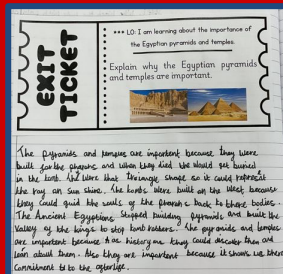 EXIT
TICKET
*** LO: I am learning about the importance of
the Egyptian pyramids and temples.
Explain why the Egyptian pyramids
and temples are important.
The pyramids and temples are important because they were
built for the pharaohs and when they died the would get buried
in the tomb. The were that triangle shape so it could represent
the ray on sun shine. The tombs were built on the West because
they could guid the souls of the pharaohs back to there bodies.
The Ancient Egyptians stopped building pyramids and built the
Valley of the kings to stop tomb robbers. The pyramids and temples
are important because
history
they could discover them and
lean about them. Also they are important because it shows us there
commitment to to the afterlife.